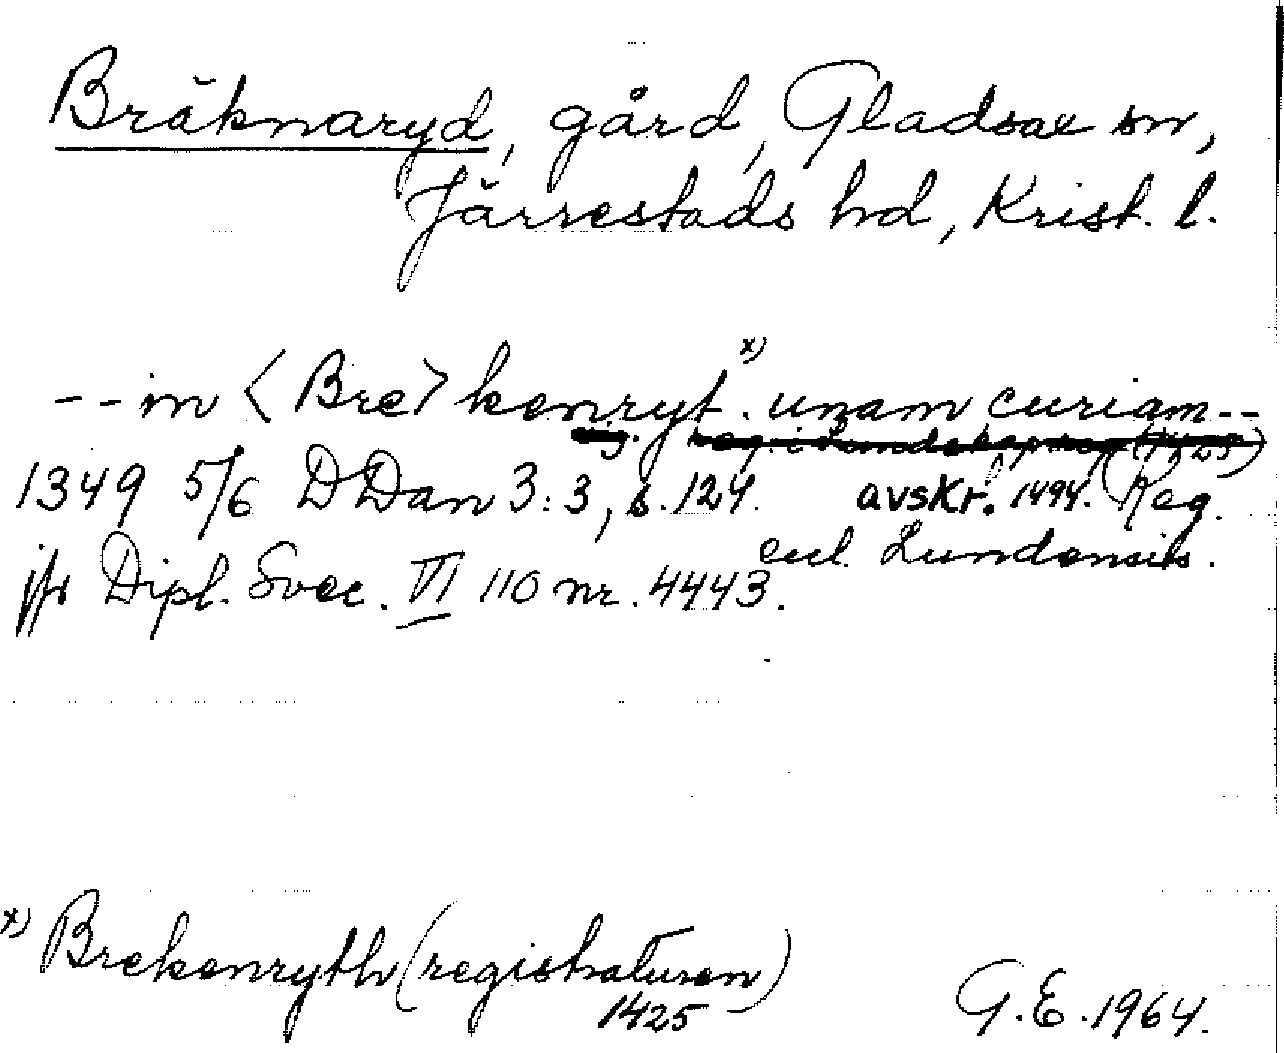 Bräknaryd, gård, Gladsax sn,
Järrestads hd, Krist. l.
-- in <Bre>kenryt x). unam curiam --
1349 5/6 DDan 3:3, s. 124. avskr. 1494. Reg.
eccl. Lundensis.
jfr Dipl. Svec. VI 110 nr. 4443.
x) Brekenryth (registraturen)
1425
G.E. 1964.